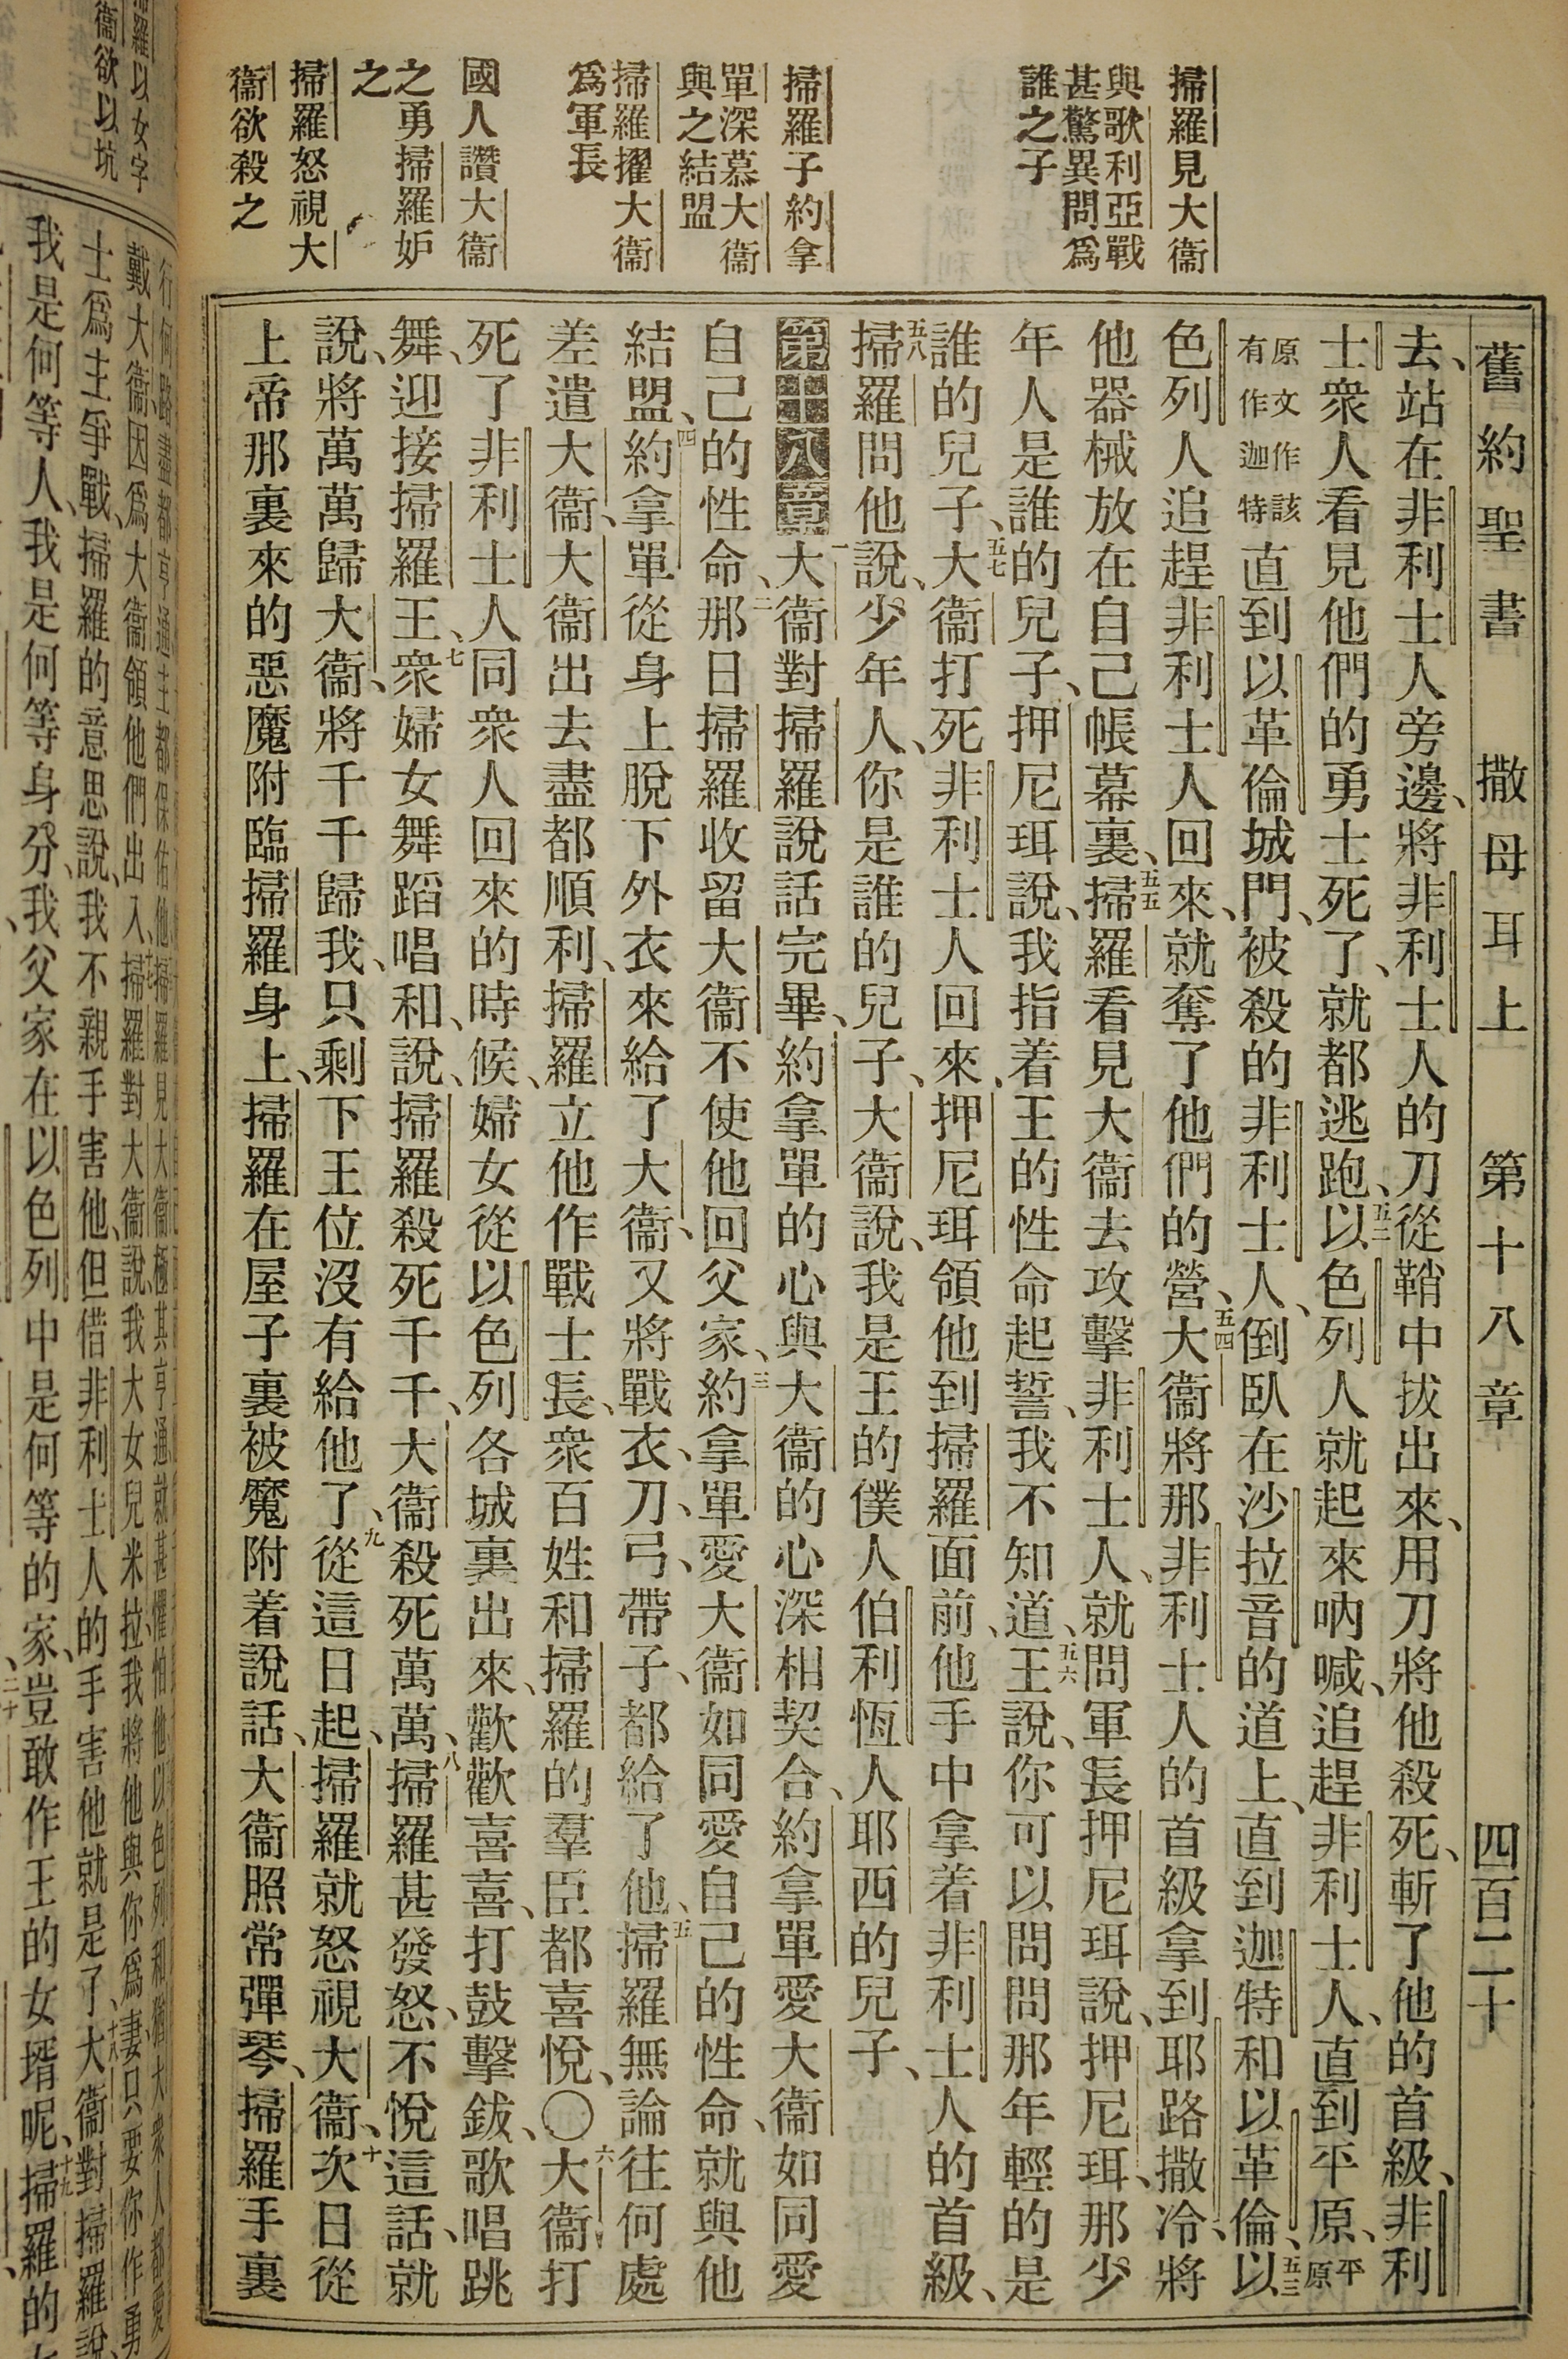 舊約聖書 撒母耳上 第十八章 四百二十
掃羅見大衞
與歌利亞戰
甚驚異問爲
誰之子
掃羅子約拿
單深慕大衞
與之結盟
掃羅擢大衞
爲軍長
國人讚大衞
之勇掃羅妒
之
掃羅怒視大
衞欲殺之
去、站在非利士人旁邊、將非利士人的刀從鞘中拔出來、用刀將他殺死、斬了他的首級、非利
士衆人看見他們的勇士死了、就都逃跑、五二以色列人就起來吶喊、追趕非利士人、直到平原、平原
原文作該有作迦特直到以革倫城門、被殺的非利士人、倒臥在沙拉音的道上、直到迦特和以革倫、五三以
色列人追趕非利士人回來、就奪了他們的營、五四大衞將那非利士人的首級拿到耶路撒冷、將
他器械放在自己帳幕裏、五五掃羅看見大衞去攻擊非利士人、就問軍長押尼珥說、押尼珥、那少
年人是誰的兒子、押尼珥說、我指着王的性命起誓、我不知道、五六王說、你可以問問那年輕的是
誰的兒子、五七大衞打死非利士人回來、押尼珥領他到掃羅面前、他手中拿着非利士人的首級、
五八掃羅問他說、少年人、你是誰的兒子、大衞說、我是王的僕人伯利恆人耶西的兒子、
第十八章一大衞對掃羅說話完畢、約拿單的心與大衞的心深相契合、約拿單愛大衞如同愛
自己的性命、二那日掃羅收留大衞不使他回父家、三約拿單愛大衞如同愛自己的性命、就與他
結盟、四約拿單從身上脫下外衣來給了大衞、又將戰衣、刀、弓、帶子、都給了他、五掃羅無論往何處
差遣大衞、大衞出去盡都順利、掃羅立他作戰士長、衆百姓和掃羅的羣臣都喜悅、〇六大衞打
死了非利士人同衆人回來的時候、婦女從以色列各城裏出來、歡歡喜喜、打鼓擊鈸、歌唱跳
舞、迎接掃羅王、七衆婦女舞蹈唱和、說、掃羅殺死千千、大衞殺死萬萬、八掃羅甚發怒、不悅這話、就
說、將萬萬歸大衞、將千千歸我、只剩下王位沒有給他了、九從這日起、掃羅就怒視大衞、十次日從
上帝那裏來的惡魔附臨掃羅身上、掃羅在屋子裏被魔附着說話、大衞照常彈琴、掃羅手裏
掃羅以女字
衞欲以坑
行何路盡都亨通主都保佑他、掃羅見大衞極其亨通就甚懼怕他以色列和猶大衆人都愛
戴大衞、因爲大衞領他們出入、十七掃羅對大衞說我大女兒米拉我將他與你爲妻、只要你作勇
士爲主爭戰、掃羅的意思說、我不親手害他、但借非利士人的手害他就是了、十八大衞對掃羅說
我是何等人、我是何等身分、我父家在以色列中是何等的家、豈敢作王的女壻呢、十九掃羅的